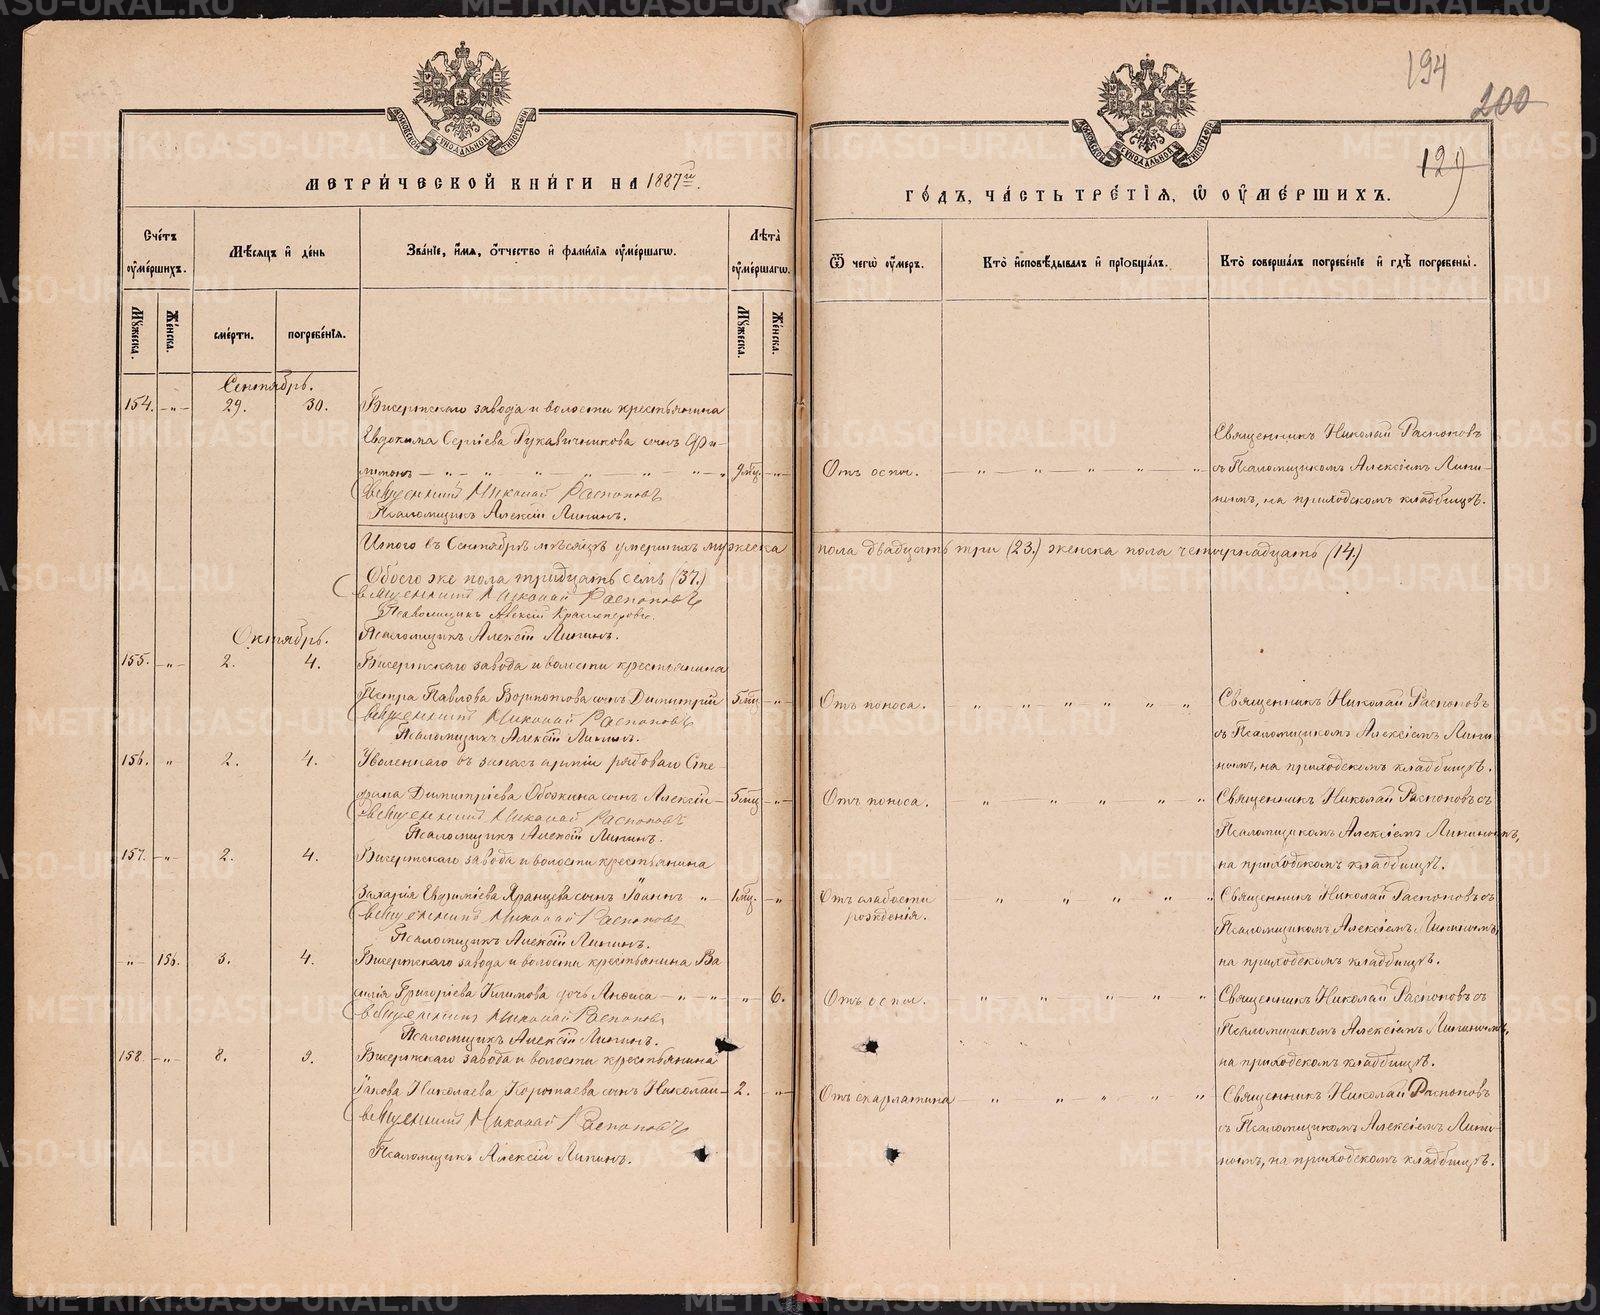 194
200
129
МЕТРИ́ЧЕСКОЙ КНИ́ГИ НА 1887й.
ГО́ДЪ, ЧА́СТЬ ТРЕ́ТІЯ, Ѽ ОУ҆МЕ́РШИХЪ.
Сче́тъ оу҆ме́ршихъ.
Мѣ́сяцъ и҆ де́нь
Зва́ніе, и҆́мя, ѻ҆́тчество и҆ фами́лія оу҆ме́ршагѡ.
Лѣ́та оу҆ме́ршагѡ.
Ѿ чегѡ̀ оу҆́меръ.
Кто̀ и҆сповѣ́дывалъ и҆ пріѡбща́лъ.
Кто̀ соверша́лъ погребе́ніе и҆ гдѣ̀ погребены̀.
Мꙋ́жеска.
Же́нска.
сме́рти.
погребе́нія.
Мꙋ́жеска.
Же́нска.
Сентябрь.
154. - „ - 29. 30. Бисертскаго завода и волости крестьянина
Евдокима Сергіева Рукавичникова сынъ Фи-
лимонъ — „ — „ — 9 мц. - „ - Отъ оспы. — „ — „ — „ — „
Священникъ Николай Распоповъ
Псаломщикъ Алексій Липинъ.
Священникъ Николай Распоповъ
съ Псаломщикомъ Алексіемъ Липи-
нымъ, на приходскомъ кладбищѣ.
Итого въ Сентябрѣ мѣсяцѣ умершихъ мужеска пола двадцать три (23.) женска пола четырнадцать (14.)
Обоего же пола тридцать семь (37.)
Священникъ Николай Распоповъ
Псаломщикъ Алексій Красноперовъ.
Псаломщикъ Алексій Липинъ.
Октябрь.
155. - „ - 2. 4. Бисертскаго завода и волости крестьянина
Петра Павлова сынъ Димитрій 5 мц. - „ - Отъ поноса. — „ — „ — „ — „
Священникъ Николай Распоповъ
Псаломщикъ Алексій Липинъ.
Священникъ Николай Распоповъ
съ Псаломщикомъ Алексіемъ Липи-
нымъ, на приходскомъ кладбищѣ.
156. „ 2. 4. Уволеннаго въ запасъ арміи рядоваго Сте-
фана Димитріева Обожина сынъ Алексій — 5 мц. - „ - Отъ поноса. — „ — „ — „ — „
Священникъ Николай Распоповъ
Псаломщикъ Алексій Липинъ.
Священникъ Николай Распоповъ съ
Псаломщикомъ Алексіемъ Липинымъ,
на приходскомъ кладбищѣ.
157. - „ - 2. 4. Бисертскаго завода и волости крестьянина
Захарія Евфиміева сынъ Іоаннъ „ 1 мц. - „ Отъ слабости рожденія. — „ — „ — „ — „
Священникъ Николай Распоповъ
Псаломщикъ Алексій Липинъ.
Священникъ Николай Распоповъ съ
Псаломщикомъ Алексіемъ Липинымъ,
на приходскомъ кладбищѣ.
- „ - 156. 3. 4. Бисертскаго завода и волости крестьянина Ва
силія Григоріева Климова дочь Анфиса — „ — „ „ 6. Отъ оспы. „ — „ — „ — „
Священникъ Николай Распоповъ
Псаломщикъ Алексій Липинъ.
Священникъ Николай Распоповъ съ
Псаломщикомъ Алексіемъ Липинымъ,
на приходскомъ кладбищѣ.
158. - „ - 8. 9. Бисертскаго завода и волости крестьянина
Іакова Николаева Коротаева сынъ Николай — 2. - „ - Отъ скарлатина — „ — „ — „ — „
Священникъ Николай Распоповъ
Псаломщикъ Алексій Липинъ.
Священникъ Николай Распоповъ
съ Псаломщикомъ Алексіемъ Липи-
нымъ, на приходскомъ кладбищѣ.
METRIKI.GASO-URAL.RU